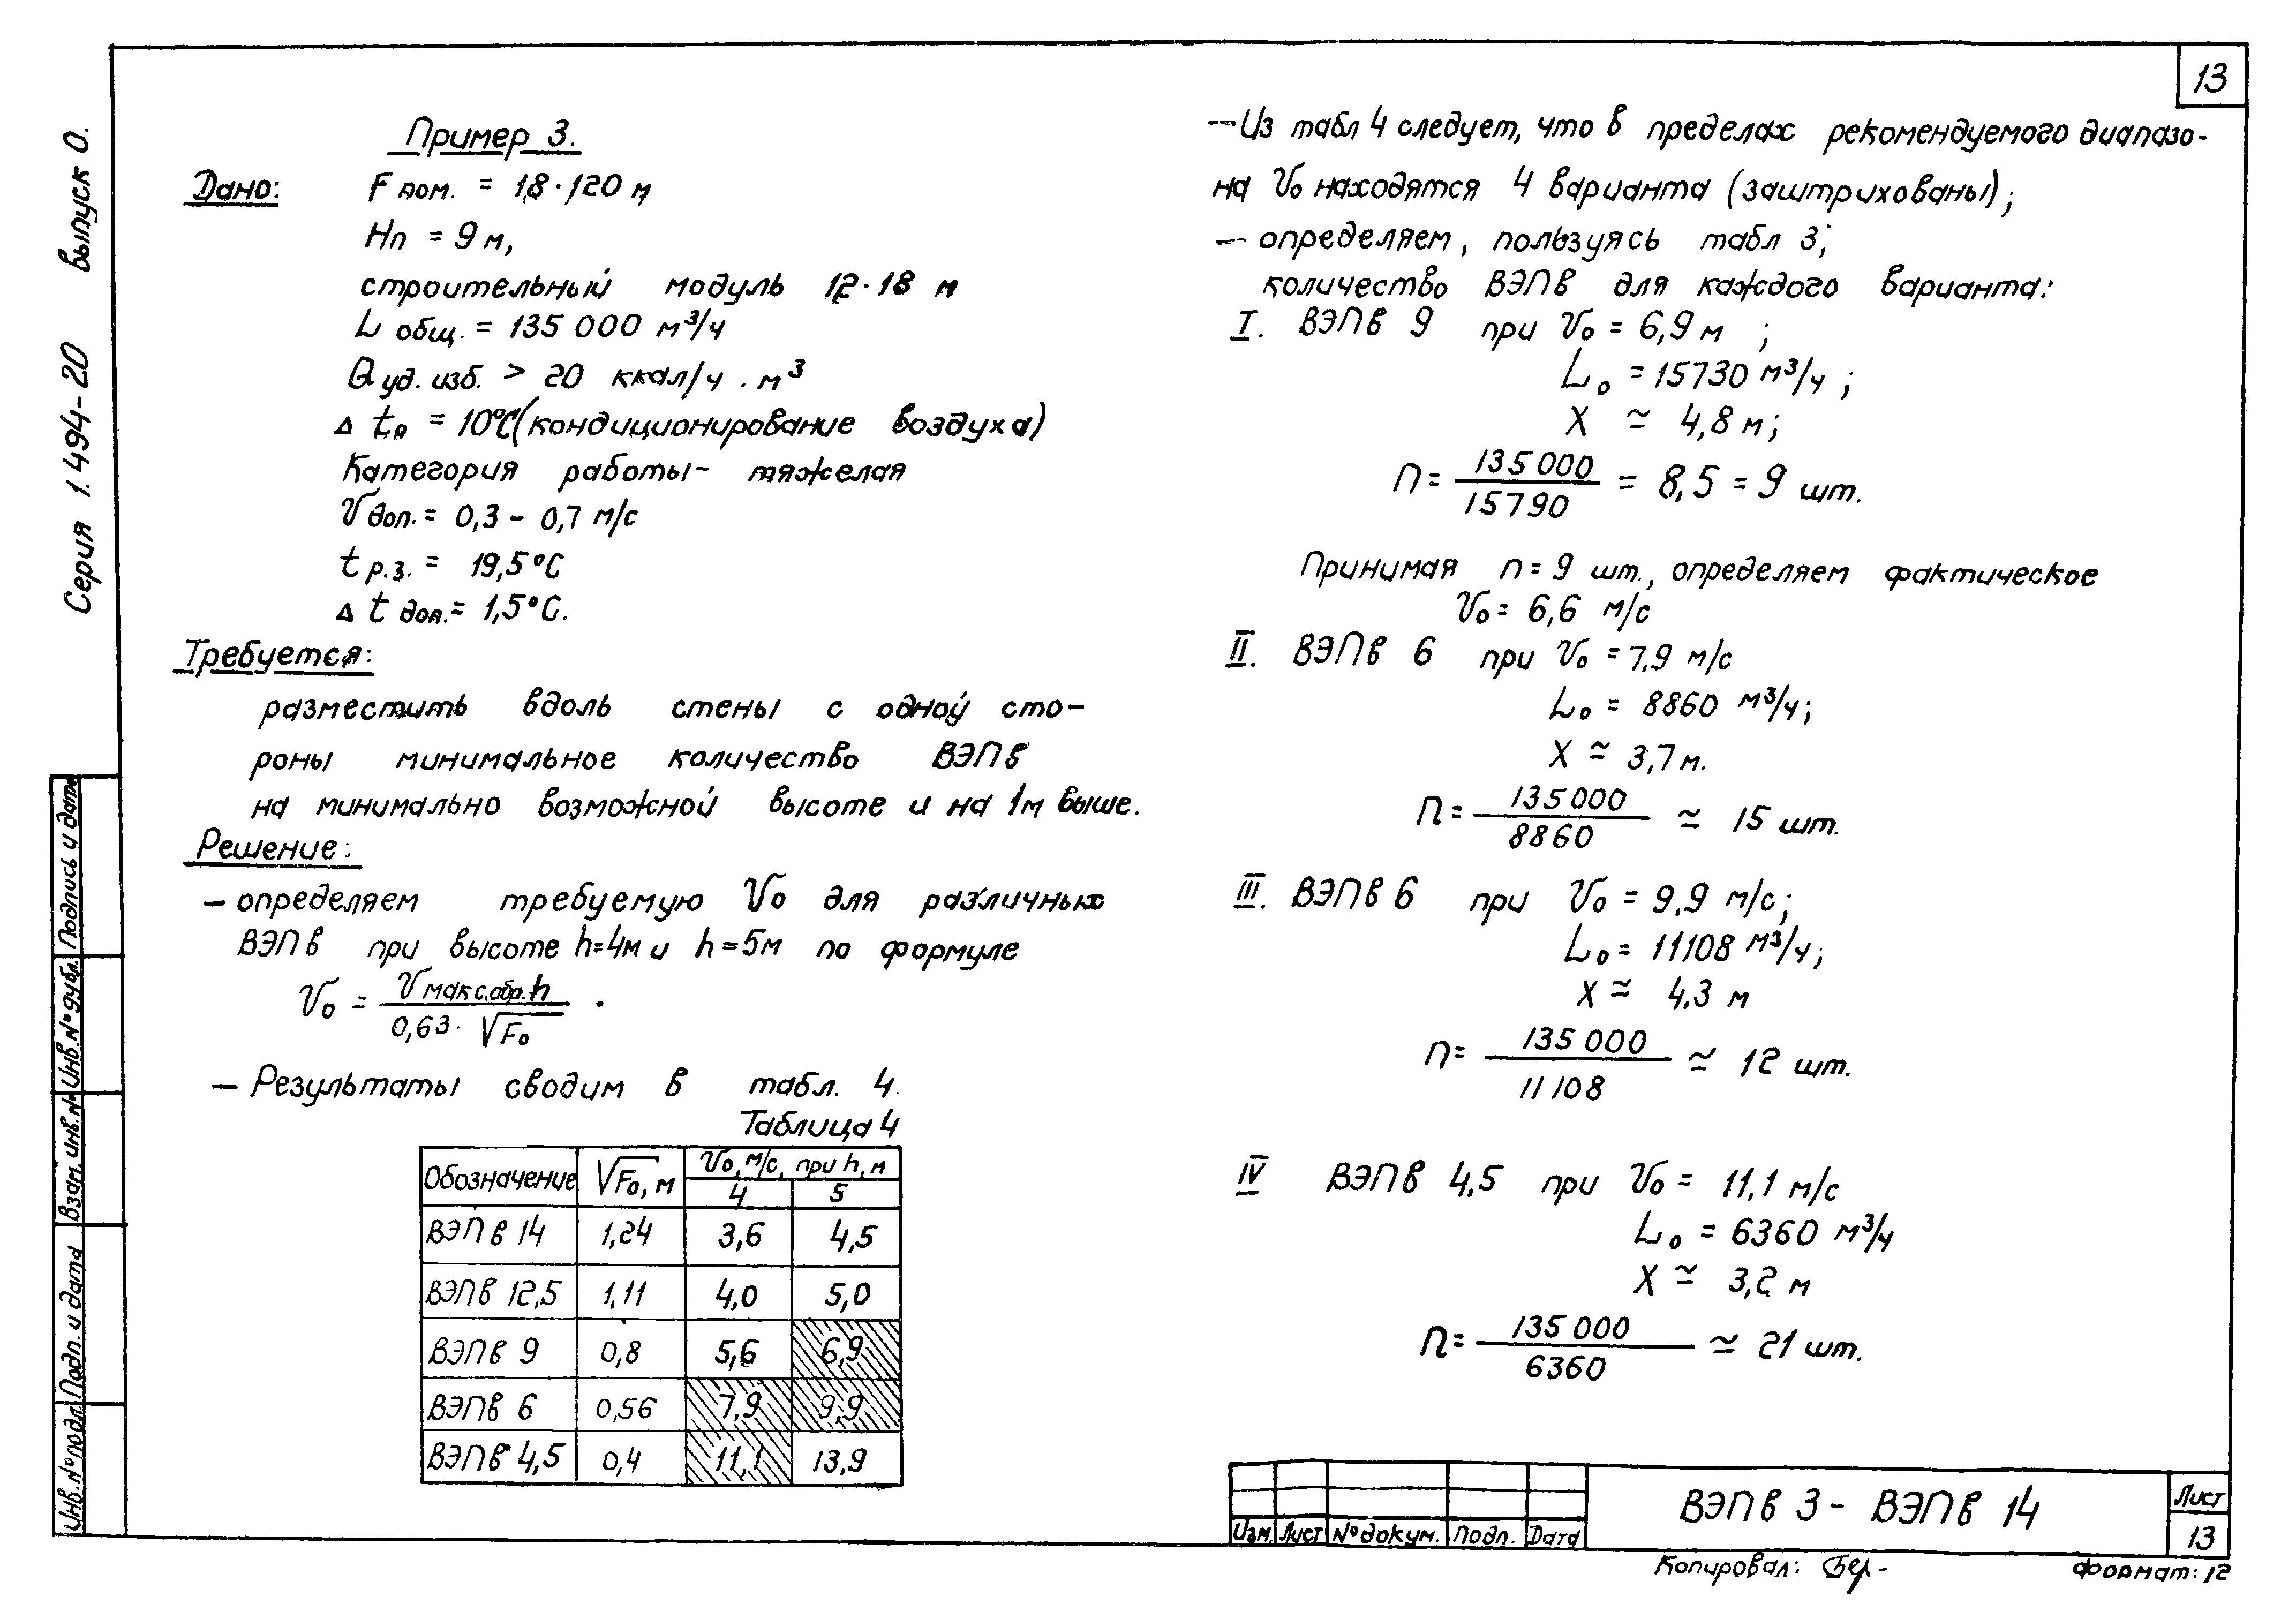 13
Серия 1.494-20 выпуск 0.
Пример 3.
Дано: F пом. = 18·120 м
Hп = 9 м,
строительный модуль 12·18 м
L общ. = 135 000 м³/ч
Q уд. изб. > 20 ккал/ч . м³
Δ t₀ = 10°С (кондиционирование воздуха)
Категория работы - тяжелая
V доп. = 0,3 - 0,7 м/с
t р.з. = 19,5°С
Δ t доп. = 1,5°С.
Требуется:
разместить вдоль стены с одной сто-
роны минимальное количество ВЭПв
на минимально возможной высоте и на 1м выше.
Решение:
- определяем требуемую V₀ для различных
ВЭПв при высоте h=4м и h=5м по формуле
V₀ = V макс.обр. h / 0,63·√F₀ .
- Результаты сводим в табл. 4.
Таблица 4
Обозначение √F₀, м V₀, м/с, при h, м
4 5
ВЭПв 14 1,24 3,6 4,5
ВЭПв 12,5 1,11 4,0 5,0
ВЭПв 9 0,8 5,6 6,9
ВЭПв 6 0,56 7,9 9,9
ВЭПв 4,5 0,4 11,1 13,9
- Из табл 4 следует, что в пределах рекомендуемого диапазо-
на V₀ находятся 4 варианта (заштрихованы);
- определяем, пользуясь табл 3,
количество ВЭПв для каждого варианта:
I. ВЭПв 9 при V₀ = 6,9 м ;
L₀ = 15730 м³/ч ;
X ≃ 4,8 м;
n = 135 000 / 15790 = 8,5 = 9 шт.
Принимая n = 9 шт., определяем фактическое
V₀ = 6,6 м/с
II. ВЭПв 6 при V₀ = 7,9 м/с
L₀ = 8860 м³/ч;
X ≃ 3,7 м.
n = 135 000 / 8860 ≃ 15 шт.
III. ВЭПв 6 при V₀ = 9,9 м/с;
L₀ = 11108 м³/ч;
X ≃ 4,3 м
n = 135 000 / 11108 ≃ 12 шт.
IV ВЭПв 4,5 при V₀ = 11,1 м/с
L₀ = 6360 м³/ч
X ≃ 3,2 м
n = 135 000 / 6360 ≃ 21 шт.
Инв. № подл. Подп. и дата Взам. инв. № Инв. № дубл. Подпись и дата
Изм. Лист № докум. Подп. Дата
ВЭПв 3 - ВЭПв 14
Лист
13
Копировал:
Формат: 12